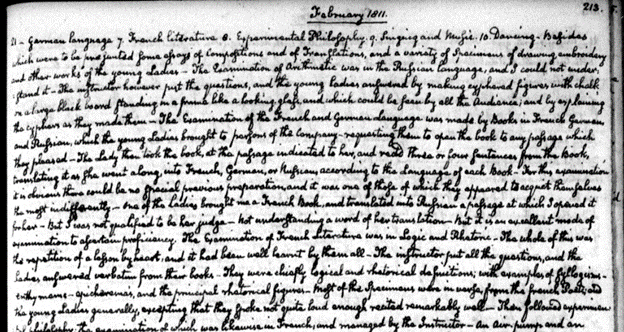 February 1811.
213.
21 – German language 7. French literature 8. Experimental Philosophy. 9. Singing and Music. 10. Dancing – Besides
which were to be presented some essays of compositions and of Translations, and a variety of Specimens of drawing embroidery
and other works of the young Ladies – The Examination of Arithmetic was in the Russian language, and I could not under-
stand it – The instructor however put the questions, and the young Ladies answered by making cyphered figures with chalk
on a large black board standing in a frame like a looking glass, and which could be seen by all the Audience, and by explaining
the cyphers as they made them – The Examination of the French and German language was made by Books in French German
and Russian, which the young Ladies brought to persons of the company – requesting them to open the book to any passage which
they pleased – The Lady then took the book, at the passage indicated to her, and read three or four sentences from the Book,
translating it as she went along into French, German, or Russian, according to the Language of each Book – For this examination
it is obvious there could be no special previous preparation, and it was one of those of which they appeared to acquit themselves
the most indifferently – One of the Ladies brought me a French Book, and translated into Russian a passage at which I opened it
for her – But I was not qualified to be her judge – Not understanding a word of her translation – But it is an excellent mode of
examination to ascertain proficiency. The Examination of French literature was in Logic and Rhetoric – The whole of this was
the repetition of a lesson by heart, and it had been well learnt by them all – The instructor put all the questions, and the
Ladies answered verbatim from their books – They were chiefly logical and rhetorical definitions, with examples of syllogisms –
enthymems – epicheremas, and the principal rhetorical figures. Most of the Specimens were in verse, from the french Poets, and
the young Ladies generally, excepting that they spoke not quite loud enough recited remarkably well – Then followed experimen
tal philosophy the examination of which was likewise in French, and managed by the Instructor – An Air pump and an